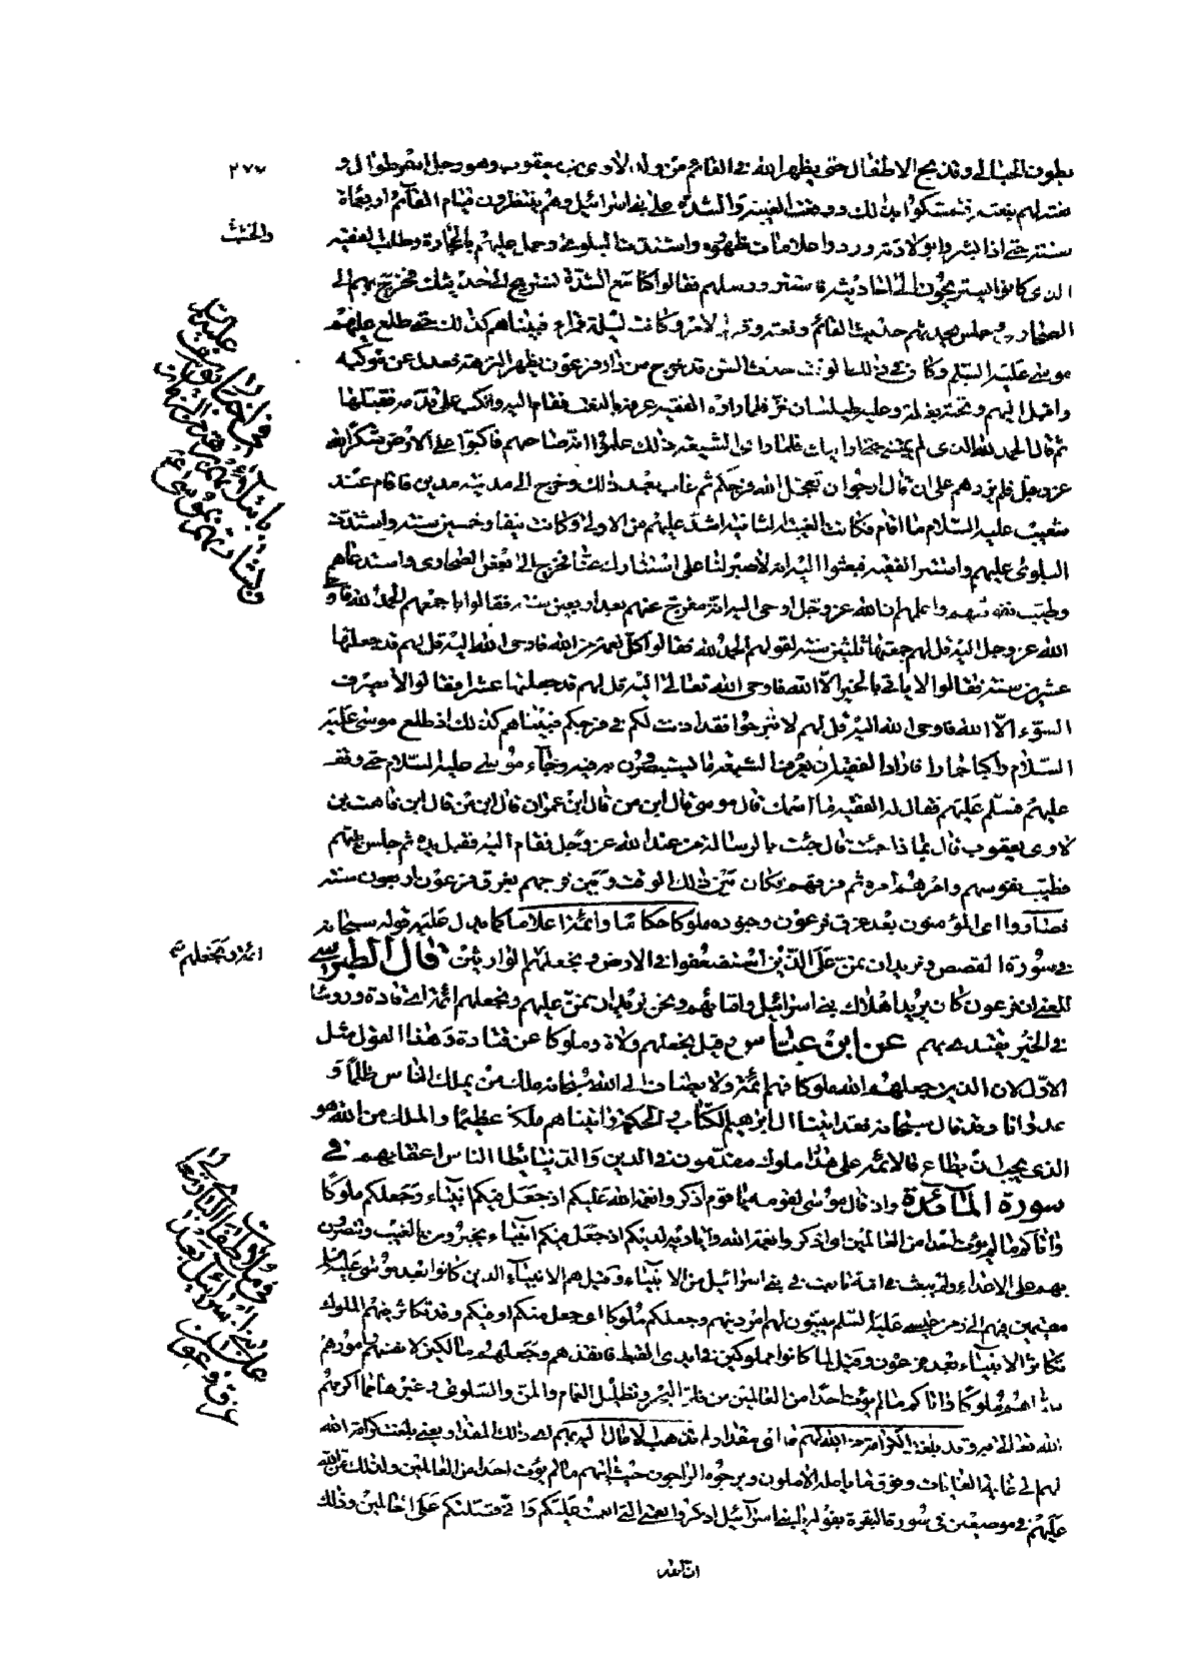 ٢٧٧
بطون الحبالى وتذبح الاطفال حتى يظهر الله فى القائم من ولد لاوى بن يعقوب وهو رجل اسمر طوال و
نعته لهم بنعته فتمسكوا بذلك ووقعت الغيبة والشدة على بنى اسرائيل وهم ينتظرون قيام القائم اربعمائة
سنة حتى اذا بشروا بولادته وردوا علامات ظهوره واشتدت البلوى وحمل عليهم بالحجارة وطلب الفقيه
والخشب
الذى كانوا يستريحون الى احاديثه فاستتر وراسلهم فقالوا كنا مع الشدة نستريح الى حديثك فخرج بهم الى
الصحارى وجلس يحدثهم حديث القائم ونعته وقرب الامر وكانت ليلة قمراء فبيناهم كذلك حتى طلع عليهم
موسى عليه السلم وكان فى ذلك الوقت حدث السن قد خرج من دار فرعون يظهر النزهة فعدل عن موكبه
واقبل اليهم وتحته بغلة وعليه طيلسان خز فلما رآه الفقيه عرفه بالنعت فقام اليه وانكب على قدميه فقبلها
ثم قال الحمد لله الذى لم يمتنى حتى ارانيك فلما راى الشيعة ذلك علموا انه صاحبهم فاكبوا على الارض شكرا لله
عز وجل فلم يزدهم على ان قال ارجوا ان يعجل الله فرجكم ثم غاب بعد ذلك وخرج الى مدينة مدين فاقام عند
شعيب عليه السلام ما اقام فكانت الغيبة الثانية اشد عليهم من الاولى وكانت نيفا وخمسين سنة واشتدت
البلوى عليهم واستتر الفقيه فبعثوا اليه انه لا صبر لنا على استتارك عنا فخرج الى بعض الصحارى واستدعاهم
وطيب نفوسهم واعلمهم ان الله عز وجل اوحى اليه انه مفرج عنهم بعد اربعين سنة فقالوا باجمعهم الحمد لله فاوحى
الله عز وجل اليه قل لهم جعلتها ثلثين سنة لقولهم الحمد لله فقالوا كل نعمة من الله فاوحى الله اليه قل لهم قد جعلتها
عشرين سنة فقالوا لا ياتى بالخير الا الله فاوحى الله تعالى اليه قل لهم قد جعلتها عشرا فقالوا لا يصرف
السوء الا الله فاوحى الله اليه قل لهم لا تبرحوا فقد اذنت لكم فى فرجكم فبيناهم كذلك اذ طلع موسى عليه
السلام راكبا حمارا فاراد الفقيه ان يعرف الشيعة ما يستبصرون به فيه وجاء موسى عليه السلام حتى وقف
عليهم فسلم عليهم فقال له الفقيه ما اسمك قال موسى قال ابن من قال ابن عمران قال ابن من قال ابن قاهث بن
لاوى بن يعقوب قال بماذا جئت قال جئت بالرسالة من عند الله عز وجل فقام اليه فقبل يده ثم جلس بينهم
فطيب نفوسهم وامرهم امره ثم فرقهم فكان بين ذلك الوقت وبين فرجهم بغرق فرعون اربعون سنة
فصاروا اى المؤمنون بعد غرق فرعون وجنوده ملوكا حكاما وائمة اعلاما كما يدل عليه قوله سبحانه
فى سورة القصص ونريد ان نمن على الذين استضعفوا فى الارض ونجعلهم الوارثين قال الطبرسى
ائمة ونجعلهم
المعنى ان فرعون كان يريد اهلاك بنى اسرائيل وافنائهم ونحن نريد ان نمن عليهم ونجعلهم ائمة اى قادة ورؤسا
فى الخير يقتدى بهم عن ابن عباس وقيل نجعلهم ولاة وملوكا عن قتادة وهذا القول مثل
الاول لان الذين جعلهم الله ملوكا فهم ائمة ولا يضاف الى الله سبحانه ملك من يملك الناس ظلما و
عدوانا وقد قال سبحانه فقد اتينا ال ابرهيم الكتاب والحكمة واتيناهم ملكا عظيما والملك من الله هو
الذى يجب ان يطاع فالائمة على هذا ملوك مقدمون فى الدين والدنيا يطا الناس اعقابهم فى
سورة المآئدة واذ قال موسى لقومه يا قوم اذكروا نعمة الله عليكم اذ جعل فيكم انبياء وجعلكم ملوكا
واتاكم ما لم يؤت احدا من العالمين اى اذكروا نعمة الله واياديه لديكم اذ جعل فيكم انبياء يخبرونكم بالغيب وتنصرون
بهم على الاعداء ولم يبعث فى امة ما بعث فى بنى اسرائيل من الانبياء وقيل هم الانبياء الذين كانوا بعد موسى عليه السلم
مقيمين فيهم الى زمن عيسى عليه السلم يبينون لهم امر دينهم وجعلكم ملوكا اى جعل منكم او فيكم وقد تكاثر فيهم الملوك
تكاثر الانبياء بعد فرعون وقيل لما كانوا مملوكين فى ايدى القبط فانقذهم وجعلهم مالكين لانفسهم وامورهم
سماهم ملوكا واتاكم ما لم يؤت احدا من العالمين من فلق البحر وتظليل الغمام والمن والسلوى وغيرها مما اكرمهم
الله تعالى به وقد بلغت الكرامة من الله لهم اى مقدار لم تذهب الامال اليه بهم اى ذلك المقدار يعنى بلغت كرامة الله
لهم الى غاية الغايات وفوق ما يامله الاملون ويرجوه الراجون حيث اتيهم ما لم يؤت احدا من العالمين ولذلك من الله
عليهم فى موضعين فى سورة البقرة بقوله يا بنى اسرائيل اذكروا نعمتى التى انعمت عليكم وانى فضلتكم على العالمين وذلك
ان الله